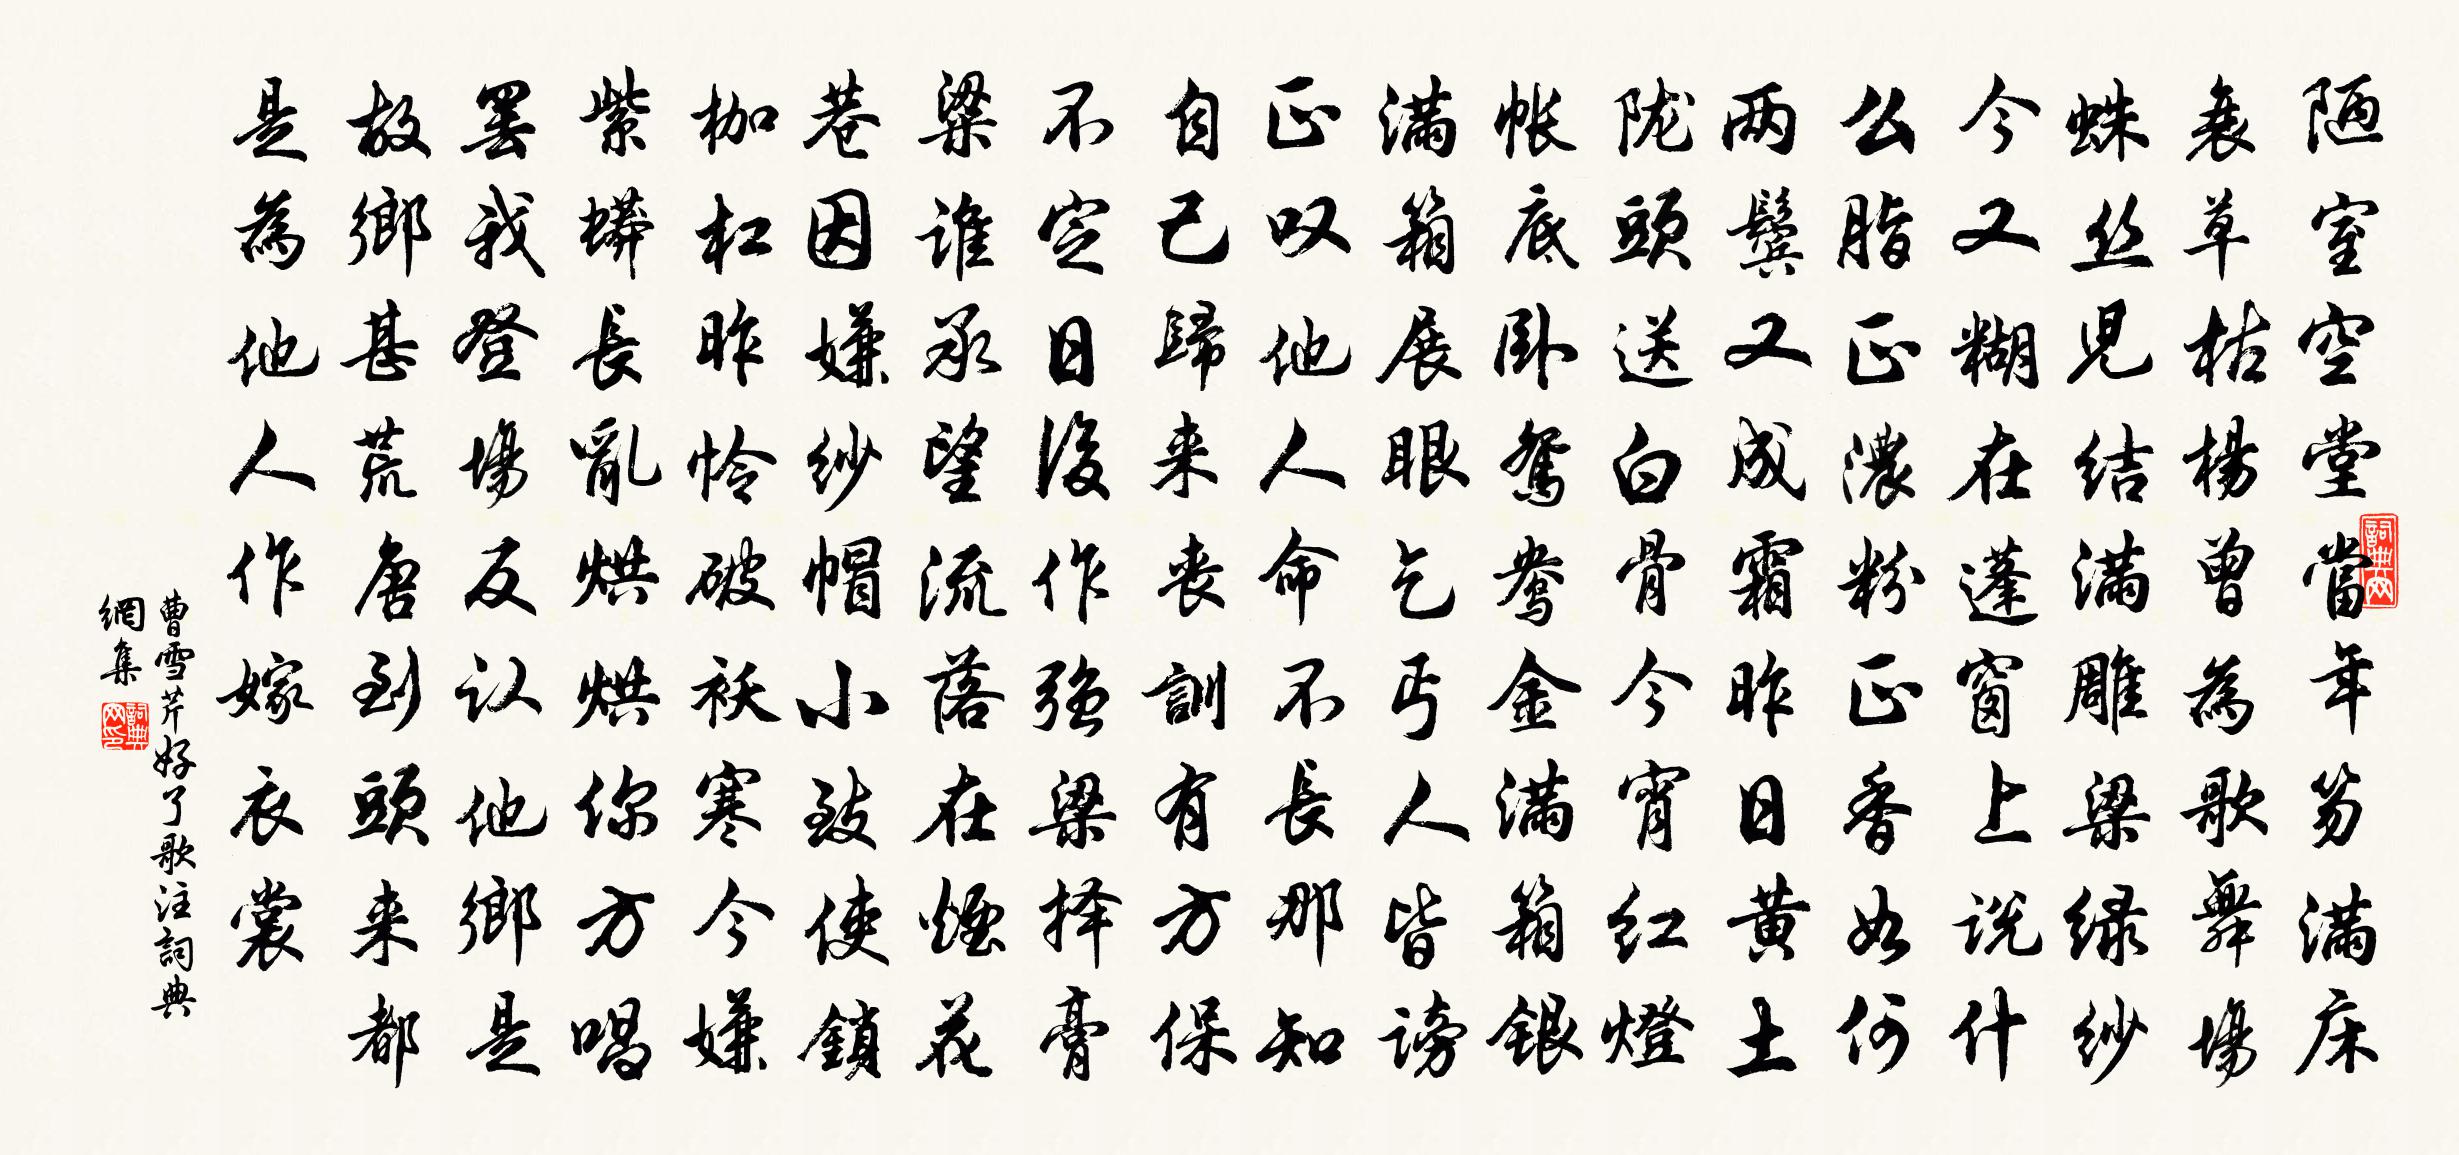 陋室空堂當年笏满床
衰草枯楊曾為歌舞場
蛛丝見结满雕梁绿纱
今又糊在蓬窗上说什
么脂正濃粉正香如何
两鬓又成霜昨日黄土
陇頭送白骨今宵红燈
帐底卧鸳鸯金满箱银
满箱展眼乞丐人皆谤
正叹他人命不長那知
自己歸来丧訓有方保
不定日後作强梁择膏
粱誰承望流落在煙花
巷因嫌纱帽小致使鎖
枷杠昨怜破袄寒今嫌
紫蟒長亂烘烘你方唱
罢我登場反认他鄉是
故鄉甚荒唐到頭来都
是為他人作嫁衣裳
曹雪芹好了歌注詞典
網集
詞典网
詞典网印